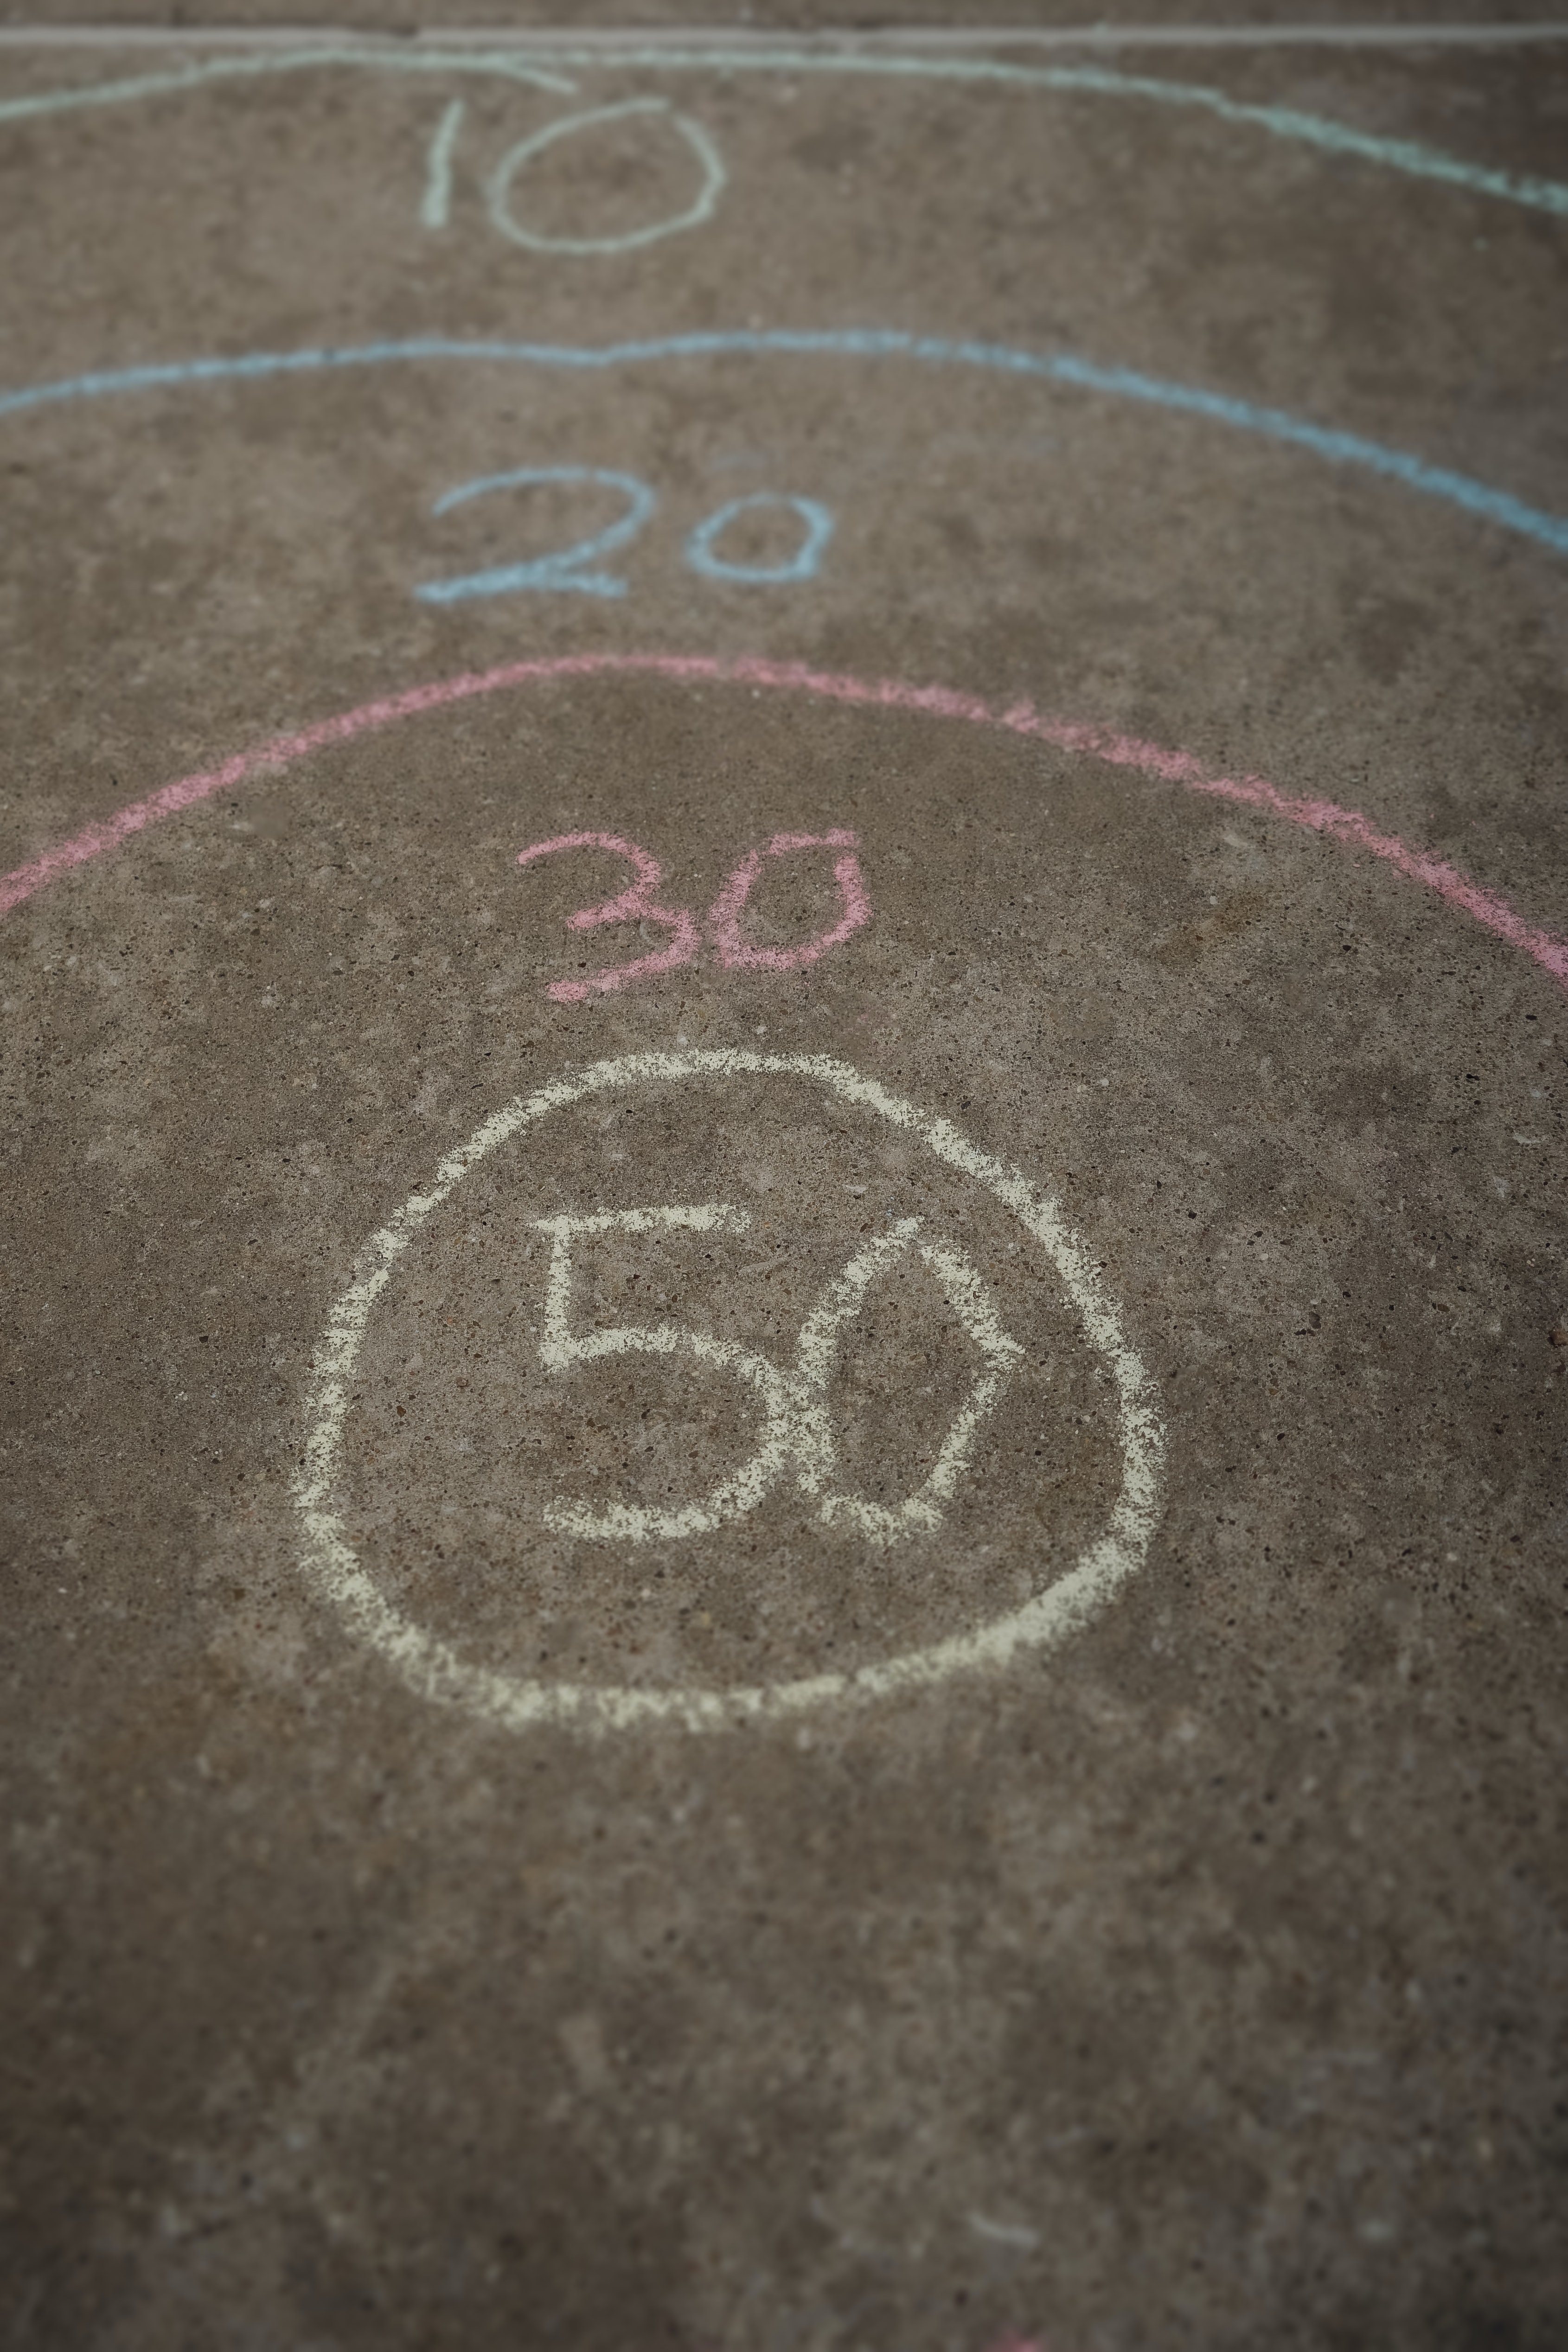 10
20
30
50